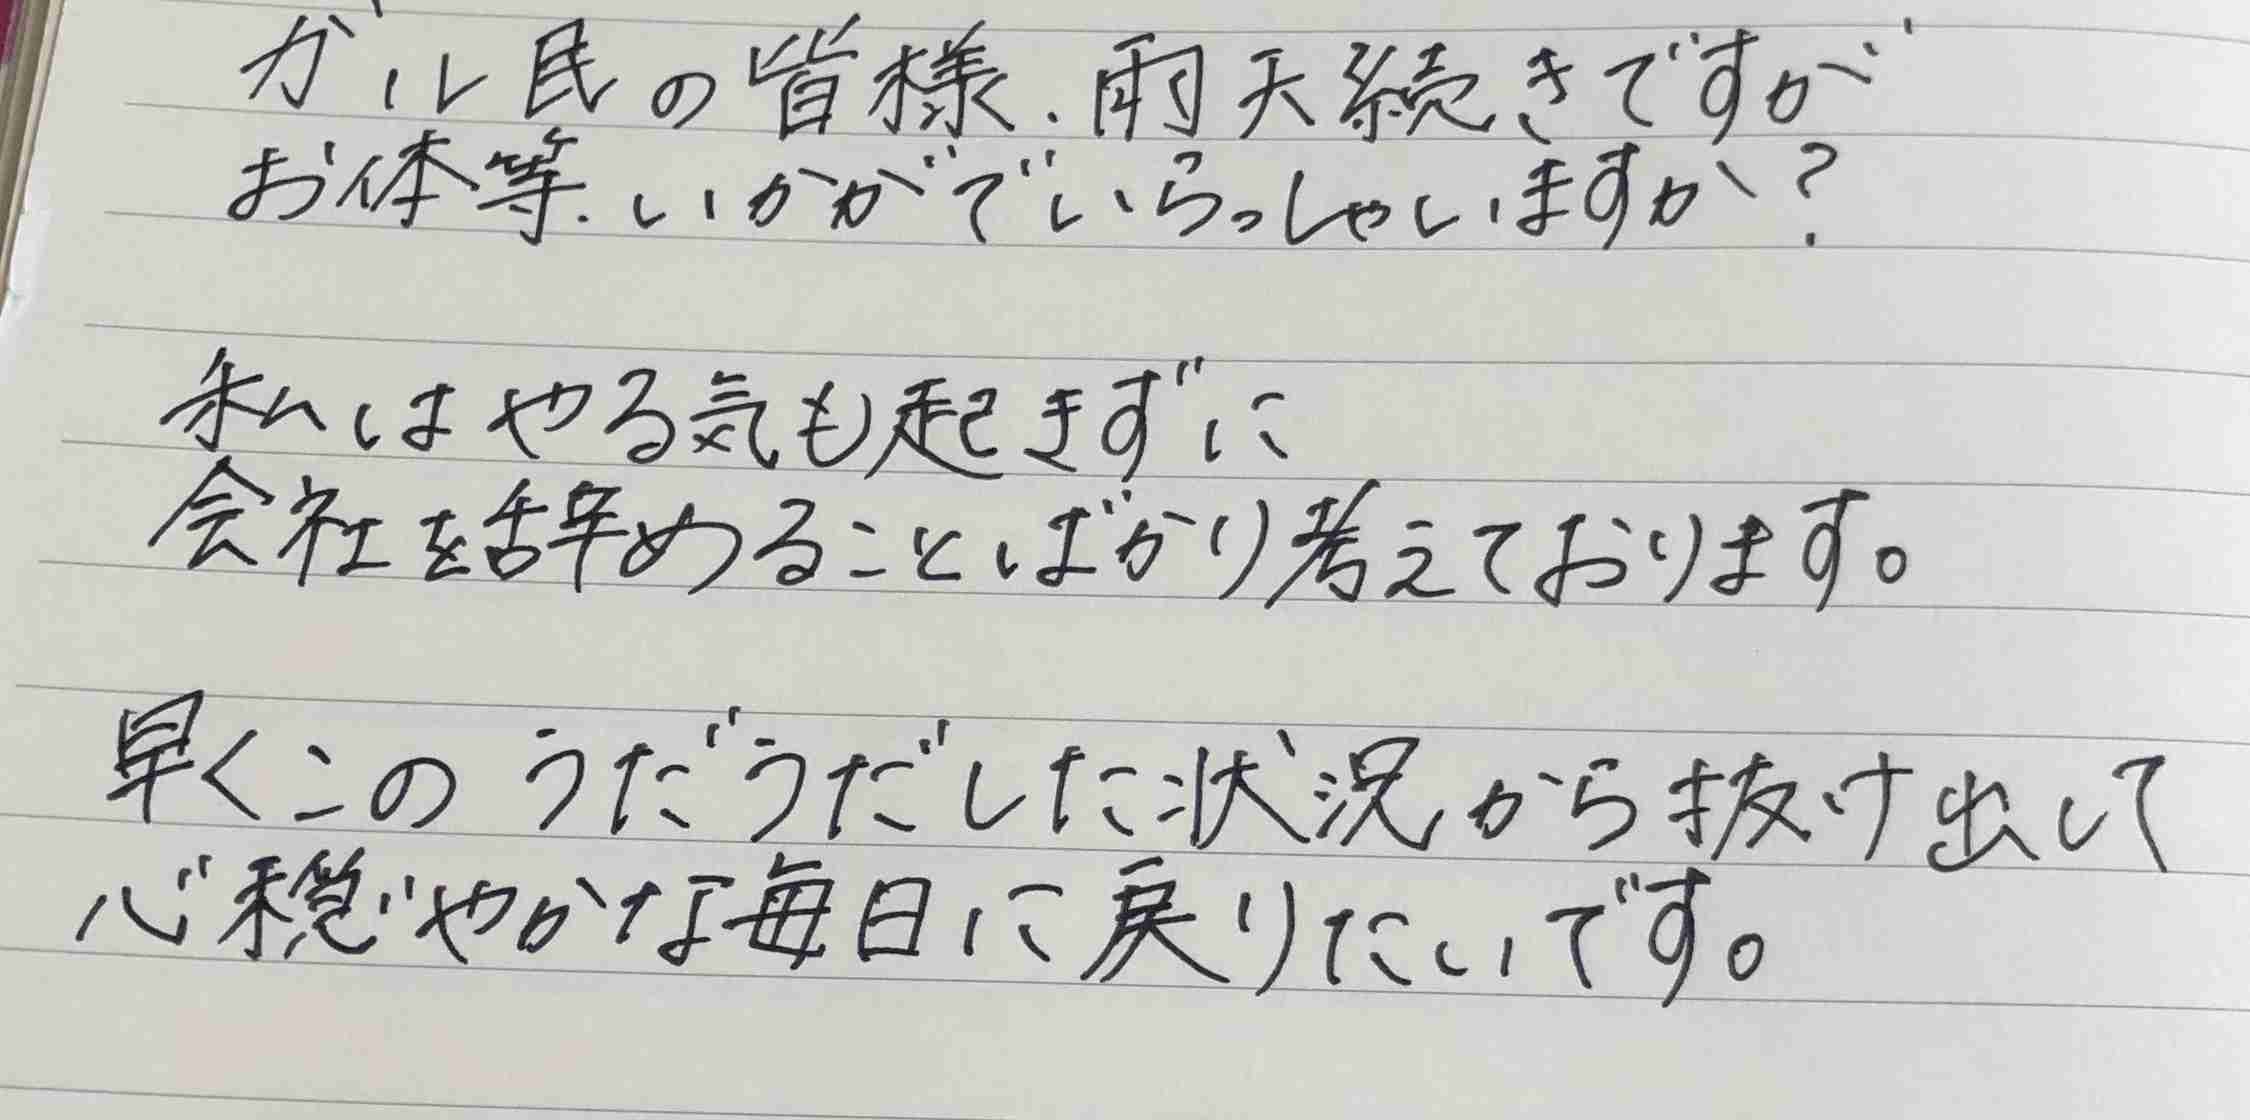 ガル民の皆様、雨天続きですが
お体等、いかがでいらっしゃいますか？
私はやる気も起きずに
会社を辞めることばかり考えております。
早くこのうだうだした状況から抜け出して
心穏やかな毎日に戻りたいです。